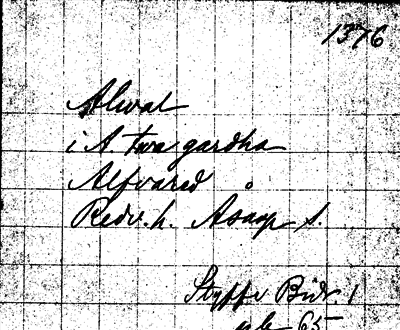 1376
Alwal
i A. twa gardha
Alfvared
Redv. h. Åsarp s.
Styffe Bidr. 1
65